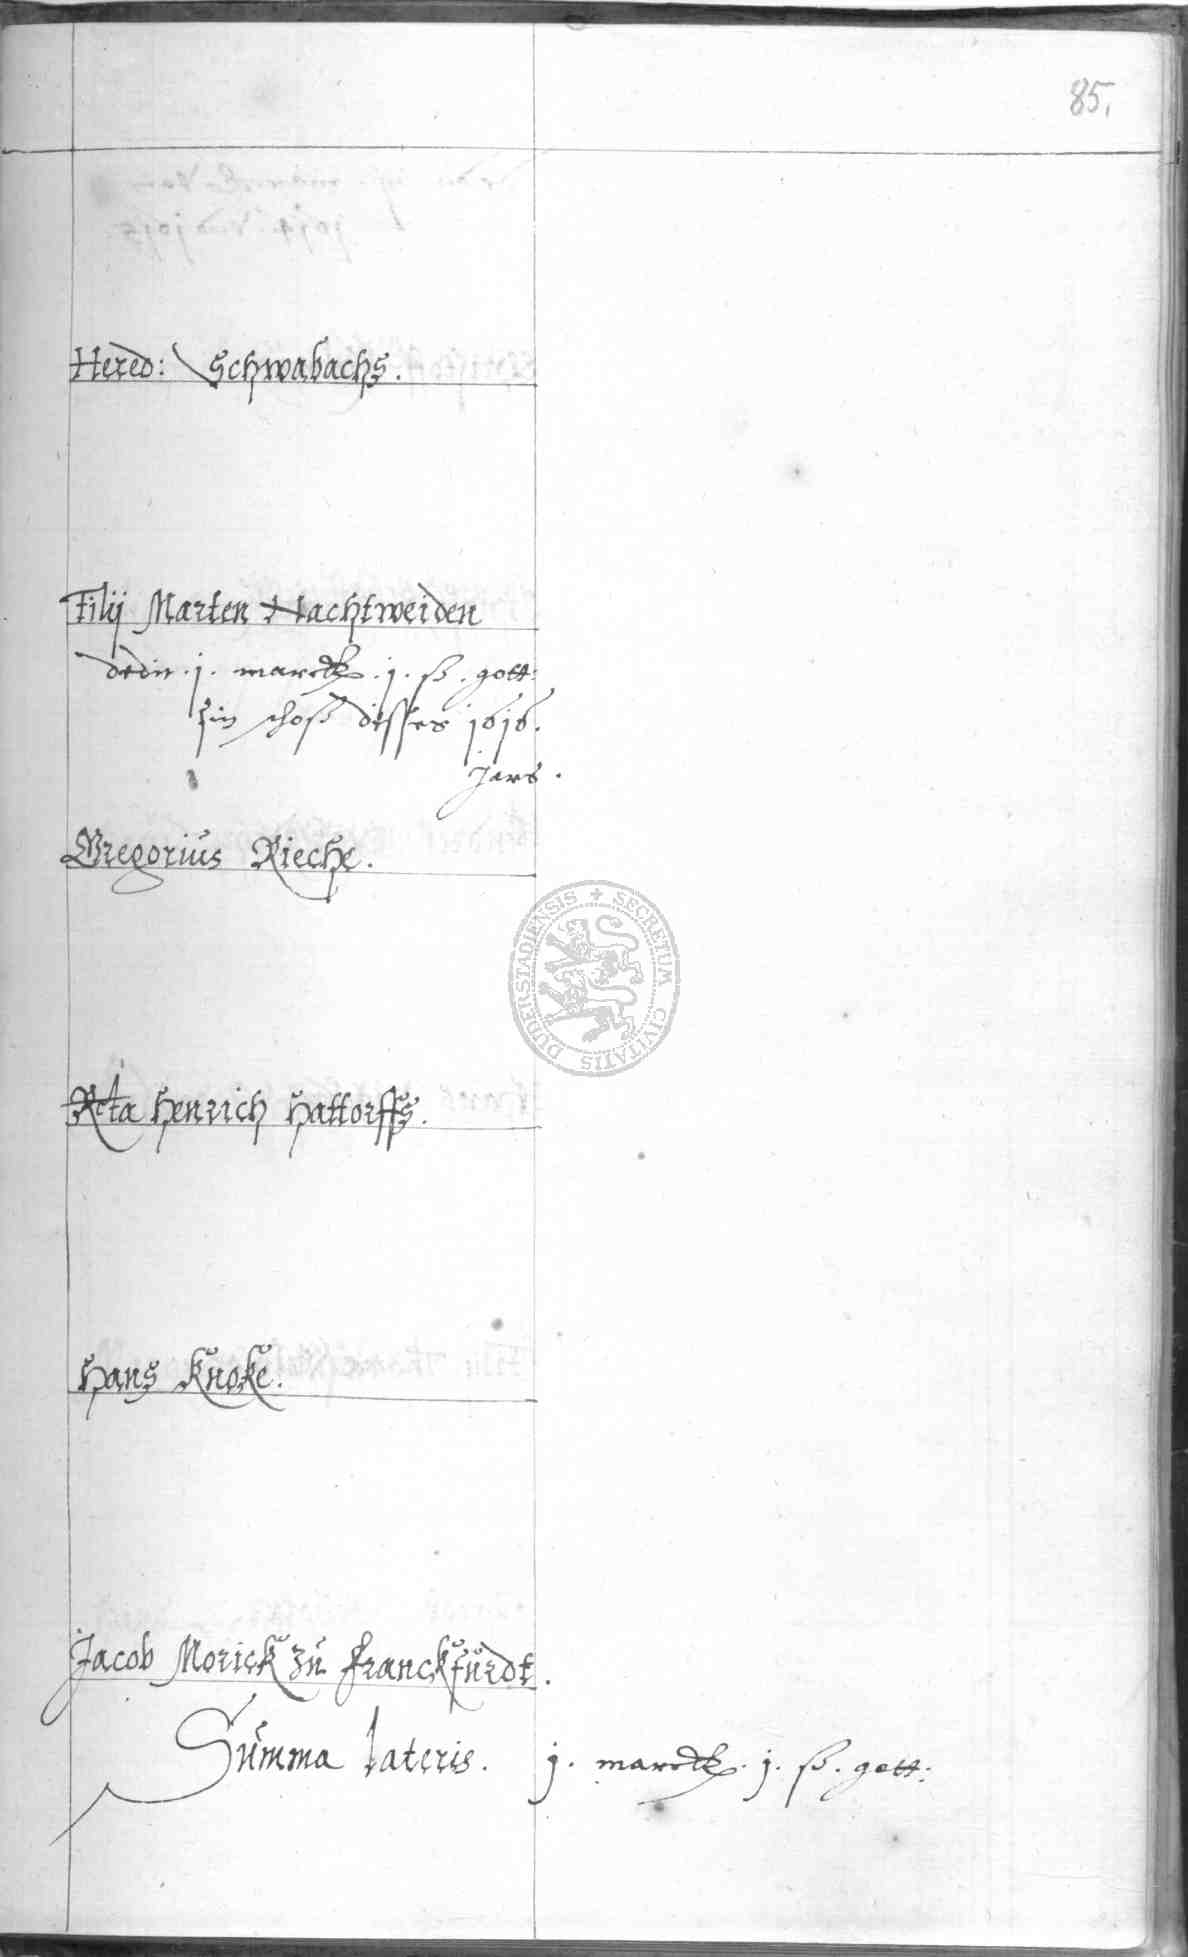 85.
Hered: Schwabachs.
Filij Marten Nachtweiden
dedit . j . marck . j . ß . gott:
schoß disses 1616.
Jars .
Gregorius Rieche.
Henrich Hattorffs.
Hans Knoke.
Jacob Morick zu Franckfurdt.
Summa lateris. j . marck . j . ß . gott:
SECRETUM CIVITATIS DUDERSTADIENSIS